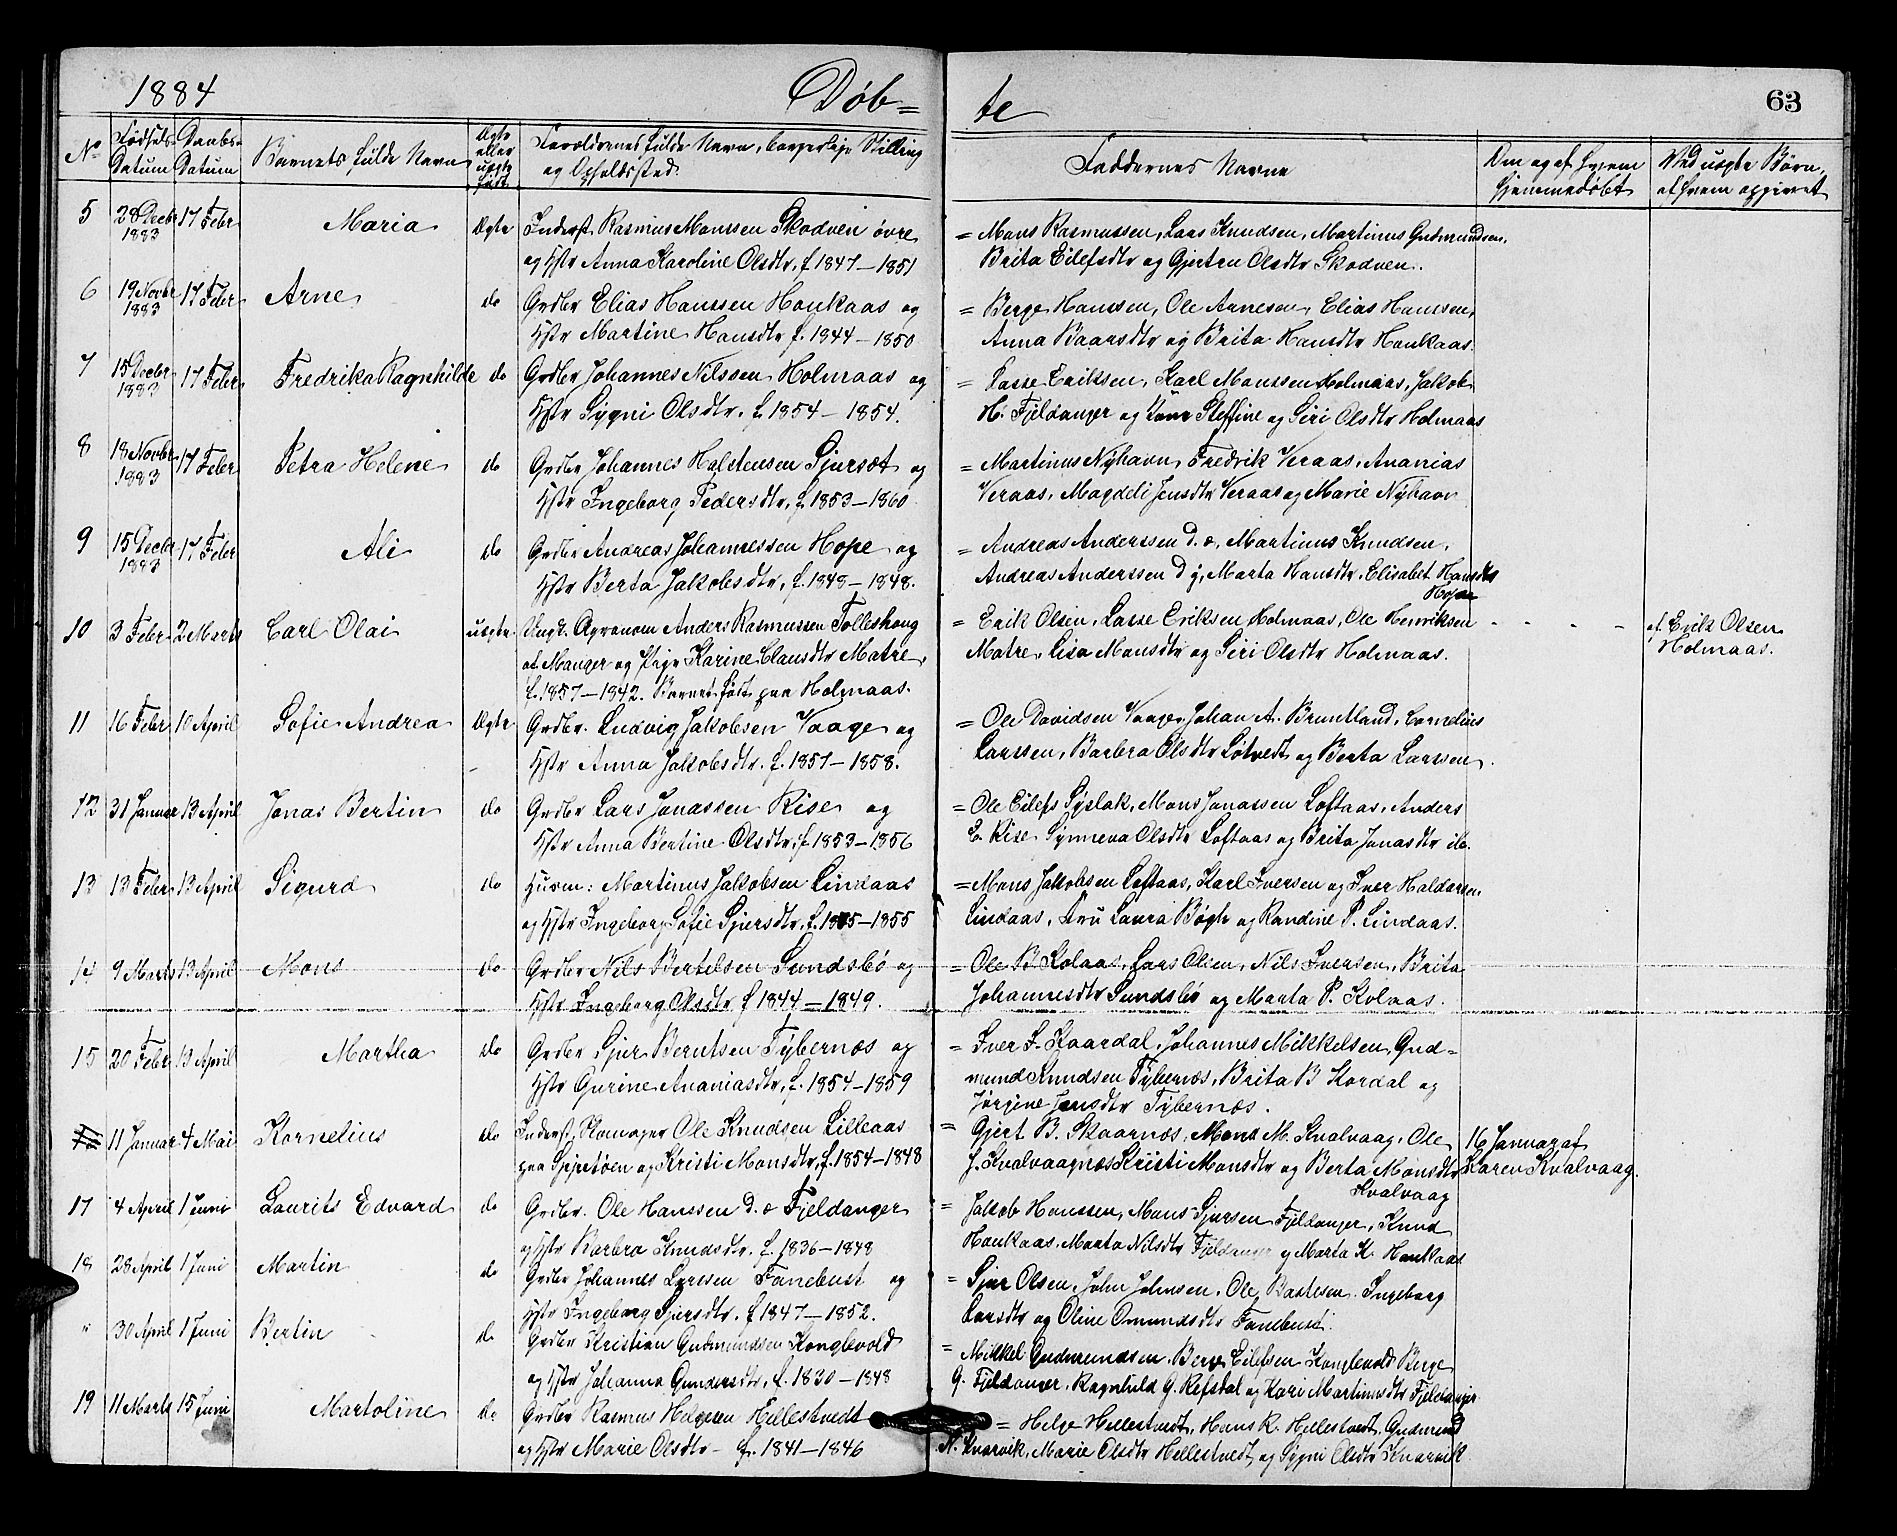 1884 Døb= te 63
No Fødsels Datum Daabs Datum Barnets fulde Navn Ægte eller uægte født Forældrenes fulde Navn, borgerlige Stilling og Opholdssted Faddernes Navne Om og af hvem hjemmedøbt Ved uægte Børn, af hvem opgivet
5 28 Decbr 1883 17 Febr Maria Ægte Inderst Rasmus Monssen Skodven øvre = Mons Rasmussen, Lars Knudsen, Martinus Gudmundsen,
og Hstr Anna Karoline Olsdtr. f 1847–1851 Brita Eilefsdtr og Gjertru Olsdtr Skodven.
6 19 Novbr 1883 17 Febr Arne do Grdbr Elias Hanssen Haukaas og = Berge Hanssen, Ole Arnesen, Elias Hanssen,
Hstr Martine Hansdtr f. 1844–1850 Anna Baarsdtr og Brita Hansdtr Haukaas.
7 15 Decbr 1883 17 Febr Fredrika Ragnhilde do Grdbr Johannes Nilssen Holmaas og = Lasse Eriksen, Karl Monssen Holmaas, Jakob
Hstr Sygni Olsdtr. f. 1854–1854. H. Fjeldanger og Steffine og Siri Olsdtr Holmaas
8 18 Novbr 1883 17 Febr Petra Helene do Grdbr Johannes Halstensen Sjursæt og = Martinus Nyhavn, Fredrik Veraas, Ananias
Hstr Ingeborg Pedersdtr, f. 1853–1860 Veraas, Magdeli Jensdtr Veraas og Marie Nyhavn
9 15 Decbr 1883 17 Febr Ali do Grdbr Andreas Johannessen Hope og = Andreas Anderssen d. æ, Martinus Knudsen,
Hstr Berta Jakobsdtr, f. 1848–1848. Andreas Anderssen d y, Marta Hansdtr, Elisabet Hansdtr
Hope
10 3 Febr 2 Marts Carl Olai uægte Ungk. Agronom Anders Rasmussen Tolleshaug = Erik Olsen, Lasse Eriksen Holmaas, Ole Henriksen - - - - af Erik Olsen
af Manger og Pige Karine Clausdtr Matre, Matre, Lisa Monsdtr og Siri Olsdtr Holmaas. Holmaas.
f. 1857–1842. Barnet født paa Holmaas.
11 16 Febr 10 April Sofie Andrea Ægte Grdbr. Ludvig Jakobsen Vaage og = Ole Davidsen Vaage, Johan A. Bruntland, Cornelius
Hstr Anna Jakobsdtr. f. 1857–1858. Larssen, Barbra Olsdtr Løtvedt og Berta Larssen.
12 31 Januar 13 April Jonas Bertin do Grdbr Lars Jonassen Rise og = Ole Eilefs Syslak, Mons Jonassen Loftaas, Anders
Hstr Anna Bertine Olsdtr, f 1853–1856 E. Rise Synneva Olsdtr Loftaas og Brita Jonasdtr ib.
13 13 Febr 13 April Sigurd do Husm: Martinus Jakobsen Lindaas = Mons Jakobsen Loftaas, Karl Iversen og Iver Haldorsen
og Hstr Ingeborg Sofie Sjursdtr, f. 1855–1855 Lindaas, Fru Laura Bøgh og Randine P. Lindaas.
14 9 Marts 13 April Mons do Grdbr Nils Bertelsen Sundsbø og = Ole B Kolaas, Lars Olsen, Nils Iversen, Brita
Hstr Ingeborg Olsdtr f 1844–1849. Johannesdtr Sundsbø og Marta P. Kolaas.
15 20 Febr 13 April Martha do Grdbr Sjur Berntsen Fybernæs og = Iver S. Kaardal, Johannes Mikkelsen, Gud=
Hstr Gurine Ananiasdtr, f. 1854–1859 mund Knudsen Fybernæs, Brita B Kordal og
Jørgine Jensdtr Fybernæs.
11 Januar 4 Mai Kornelius do Inderst, Skomager Ole Knudsen Lilleaas = Gjert B. Skaarnæs, Mons M. Kvalvaag, Ole 16 Januar af
paa og Kristi Monsdtr, f. 1854–1848 J. Kvalvaagnæs Kristi Monsdtr og Berta Monsdtr Karen Kvalvaag.
Kvalvaag
17 4 April 1 Juni Laurits Edvard do Grdbr. Ole Hanssen d. æ Fjeldanger = Jakob Hanssen, Mons Sjursen Fjeldanger, Knud
og Hstr Barbra Knudsdtr. f. 1836–1848 Haukaas. Marta Nilsdtr Fjeldanger og Marta K. Haukaas
18 28 April 1 Juni Martin do Grdbr Johannes Larssen Fanebust og = Sjur Olsen, John Johnsen, Ole Bastesen, Ingeborg
Hstr Ingeborg Sjursdtr. f. 1847–1852. Larsdtr og Oline Omundsdtr Fanebust.
" 30 April 1 Juni Bertin do Grdbr Kristian Gudmundsen Konglevold = Mikkel Gudmundsen, Berge Eilefsen Konglevold, Berge
og Hstr Johanna Gundersdtr, f. 1830–1848 G. Fjeldanger, Ragnhild G. Refsdal og Kari Martinusdtr Fjeldanger
19 11 Marts 15 Juni Martoline do Grdbr Rasmus Helgesen Hellestvedt = Helge Hellestvedt, Hans R. Hellestvedt, Gudmund
og Hstr Marie Olsdtr – f. 1841–1846 N. Knarvik, Marie Olsdtr Hellestvedt og Sygni Olsdtr Knarvik